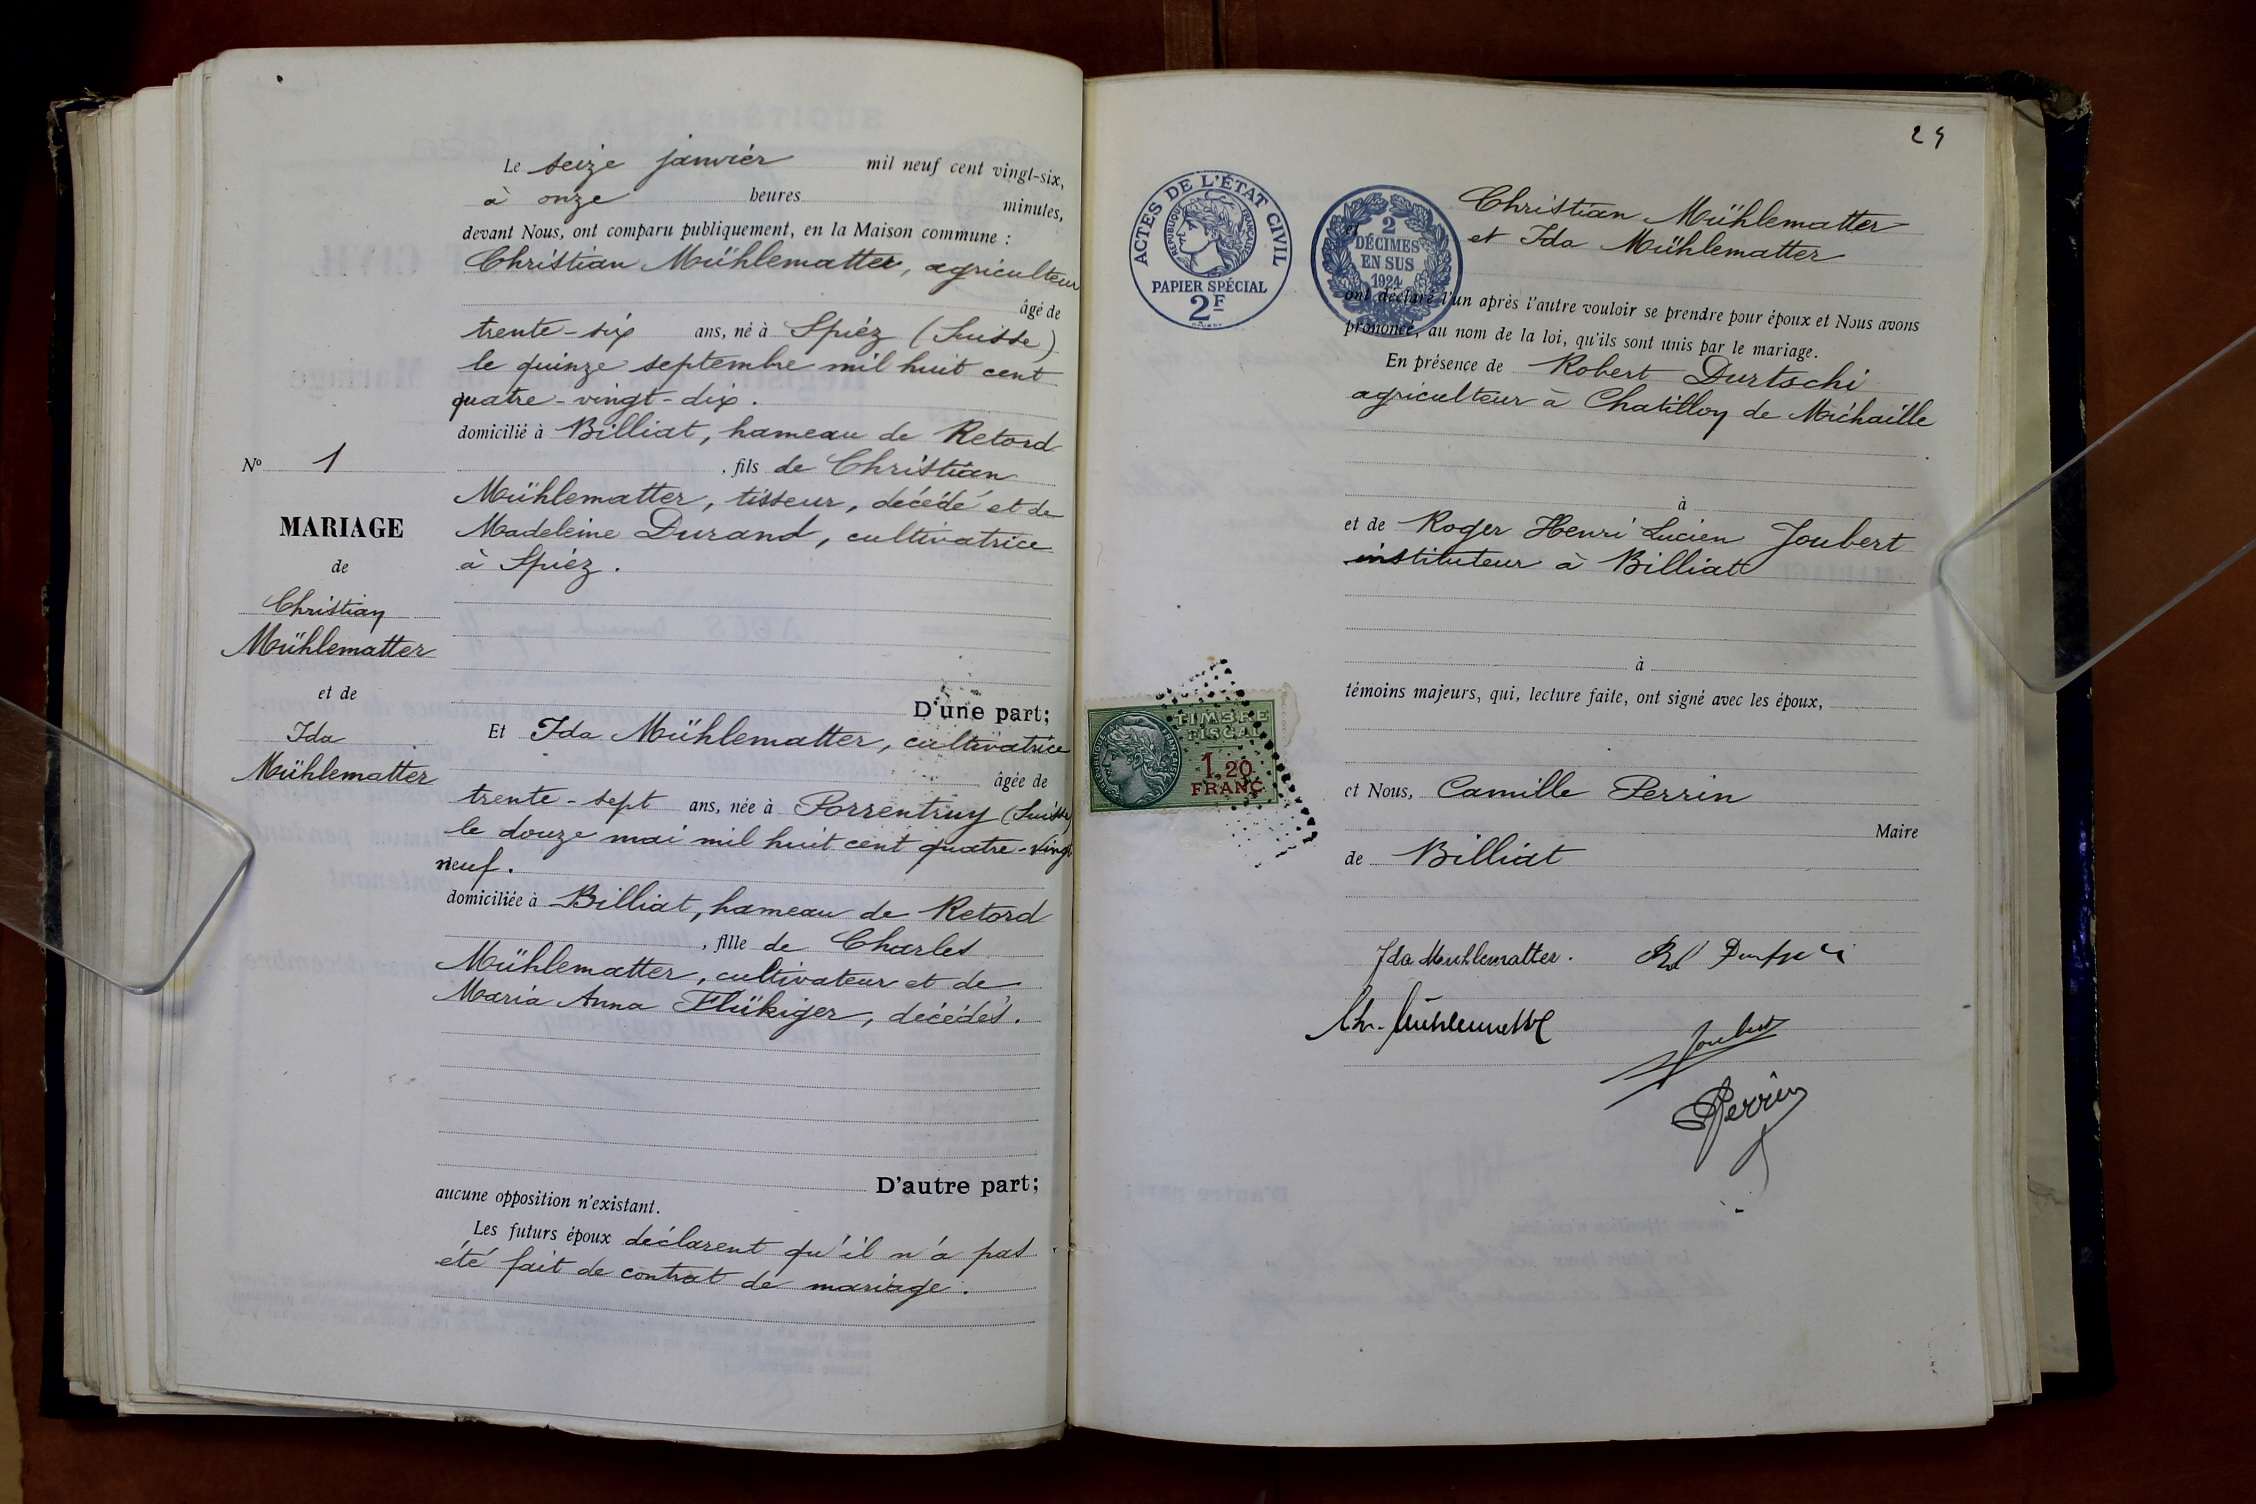 Le seize janvier mil neuf cent vingt-six,
à onze heures minutes,
devant Nous, ont comparu publiquement, en la Maison commune :
Christian Mühlematter, agriculteur
âgé de
trente-six ans, né à Spiéz (Suisse)
le quinze septembre mil huit cent
quatre-vingt-dix.
domicilié à Billiat, hameau de Retord
, fils de Christian
Mühlematter, tisseur, décédé et de
Madeleine Durand, cultivatrice
à Spiéz.
No 1
MARIAGE
de
Christian
Mühlematter
et de
Ida
Mühlematter
D'une part;
Et Ida Mühlematter, cultivatrice
âgée de
trente-sept ans, née à Porrentruy (Suisse)
le douze mai mil huit cent quatre-vingt
neuf.
domiciliée à Billiat, hameau de Retord
, fille de Charles
Mühlematter, cultivateur et de
Maria Anna Flükiger, décédés.
D'autre part;
aucune opposition n'existant.
Les futurs époux déclarent qu'il n'a pas
été fait de contrat de mariage.
24
ACTES DE L'ÉTAT CIVIL
RÉPUBLIQUE FRANÇAISE
PAPIER SPÉCIAL
2F
2
DÉCIMES
EN SUS
1924
Christian Mühlematter
et Ida Mühlematter
ont déclaré l'un après l'autre vouloir se prendre pour époux et Nous avons
prononcé, au nom de la loi, qu'ils sont unis par le mariage.
En présence de Robert Durtschi
agriculteur à Chatillon de Michaille
à
et de Roger Henri Lucien Joubert
instituteur à Billiat
à
témoins majeurs, qui, lecture faite, ont signé avec les époux,
TIMBRE
FISCAL
1,20
FRANC
et Nous, Camille Perrin
Maire
de Billiat
Ida Muhlematter.
Ch. Mühlematter
Joubert
Perrin